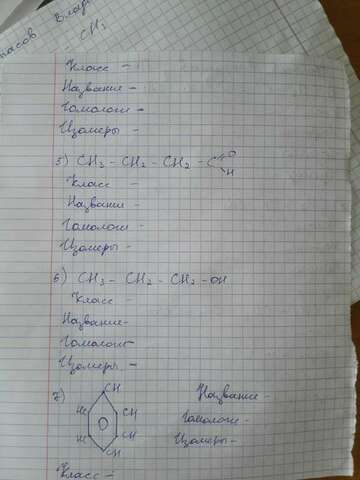 - CH3
Класс -
Название -
Гомологи -
Изомеры -
5) CH3 - CH2 - CH2 - C
O
H
Класс -
Название -
Гомологи -
Изомеры -
6) CH3 - CH2 - CH2 - OH
Класс -
Название -
Гомологи -
Изомеры -
7)
CH
HC CH
HC CH
CH
Название -
Гомологи -
Изомеры -
Класс -